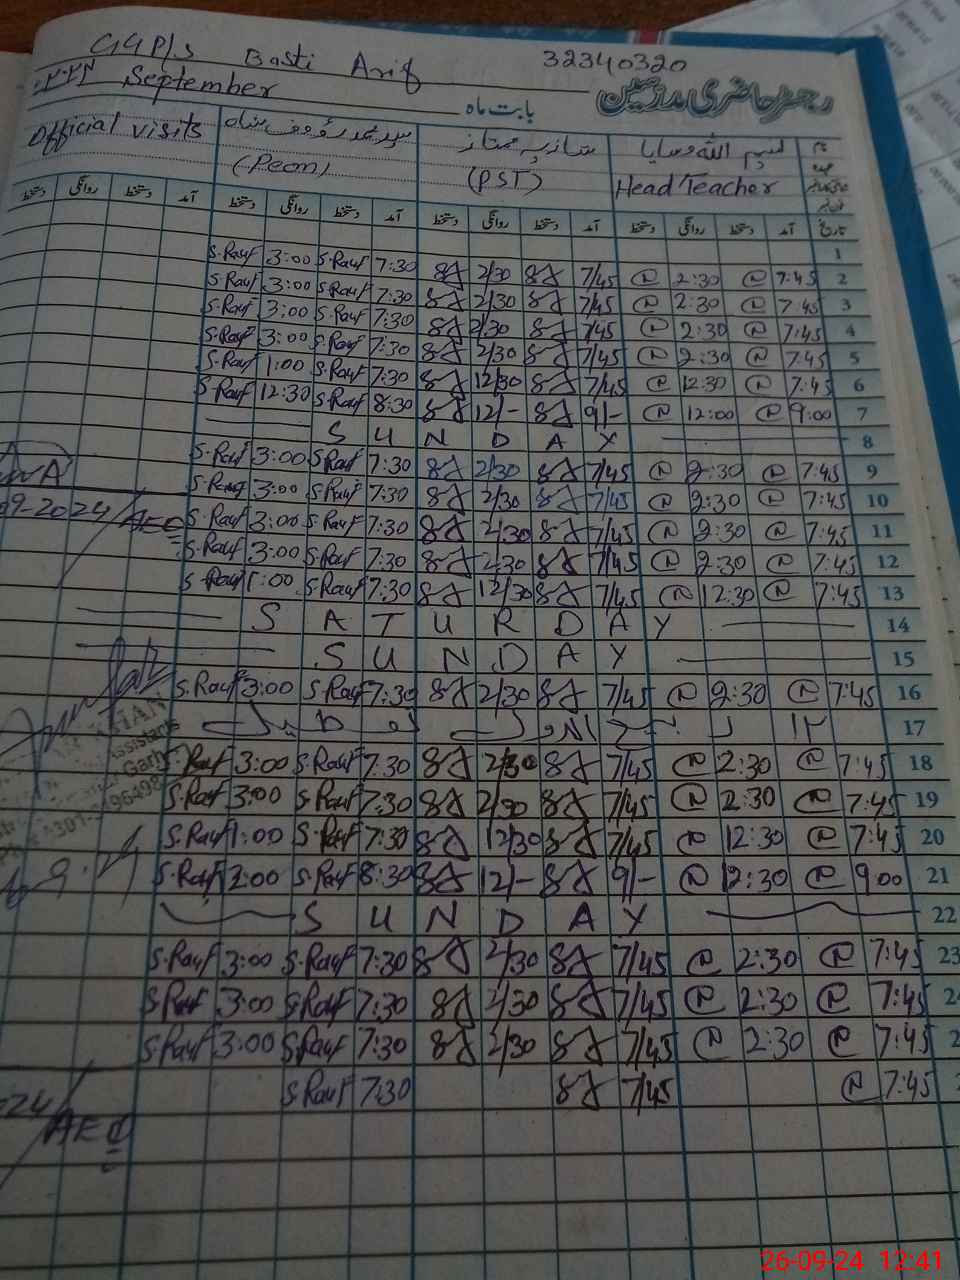 GGP/S Basti Arif 32340320
رجسٹر حاضری مدرسین
بابت ماہ September ۲۰۲۴
نام بسم اللہ وسایا شازیہ ممتاز سید محمد رؤف شاہ Official visits
عہدہ Head Teacher (PST) (Peon)
تاریخ آمد دستخط روانگی دستخط آمد دستخط روانگی دستخط آمد دستخط روانگی دستخط آمد دستخط روانگی دستخط
1
S.Rauf 3:00 S.Rauf 7:30 2/30 7/45 2:30 7:45 2
S.Rauf 3:00 S.Rauf 7:30 2/30 7/45 2:30 7:45 3
S.Rauf 3:00 S.Rauf 7:30 2/30 7/45 2:30 7:45 4
S.Rauf 3:00 S.Rauf 7:30 2/30 7/45 2:30 7:45 5
S.Rauf 1:00 S.Rauf 7:30 12/30 7/45 12:30 7:45 6
S.Rauf 12:30 S.Rauf 8:30 12/- 9/- 12:00 9:00 7
SUNDAY 8
S.Rauf 3:00 S.Rauf 7:30 2/30 7/45 2:30 7:45 9
S.Rauf 3:00 S.Rauf 7:30 2/30 7/45 2:30 7:45 10
09-2024/AEO S.Rauf 3:00 S.Rauf 7:30 2/30 7/45 2:30 7:45 11
S.Rauf 3:00 S.Rauf 7:30 2/30 7/45 2:30 7:45 12
S.Rauf 1:00 S.Rauf 7:30 12/30 7/45 12:30 7:45 13
SATURDAY 14
SUNDAY 15
S.Rauf 3:00 S.Rauf 7:30 2/30 7/45 2:30 7:45 16
۱۲ ربیع الاول 17
S.Rauf 3:00 S.Rauf 7:30 2/30 7/45 2:30 7:45 18
S.Rauf 3:00 S.Rauf 7:30 2/30 7/45 2:30 7:45 19
S.Rauf 1:00 S.Rauf 7:30 12/30 7/45 12:30 7:45 20
S.Rauf S.Rauf 8:30 12/- 9/- 12:30 9:00 21
SUNDAY 22
S.Rauf 3:00 S.Rauf 7:30 2/30 7/45 2:30 7:45 23
S.Rauf 3:00 S.Rauf 7:30 2/30 7/45 2:30 7:45
S.Rauf 3:00 S.Rauf 7:30 2/30 7/45 2:30 7:45
S.Rauf 7:30 7/45 7:45
24/AEO
26-09-24 12:41